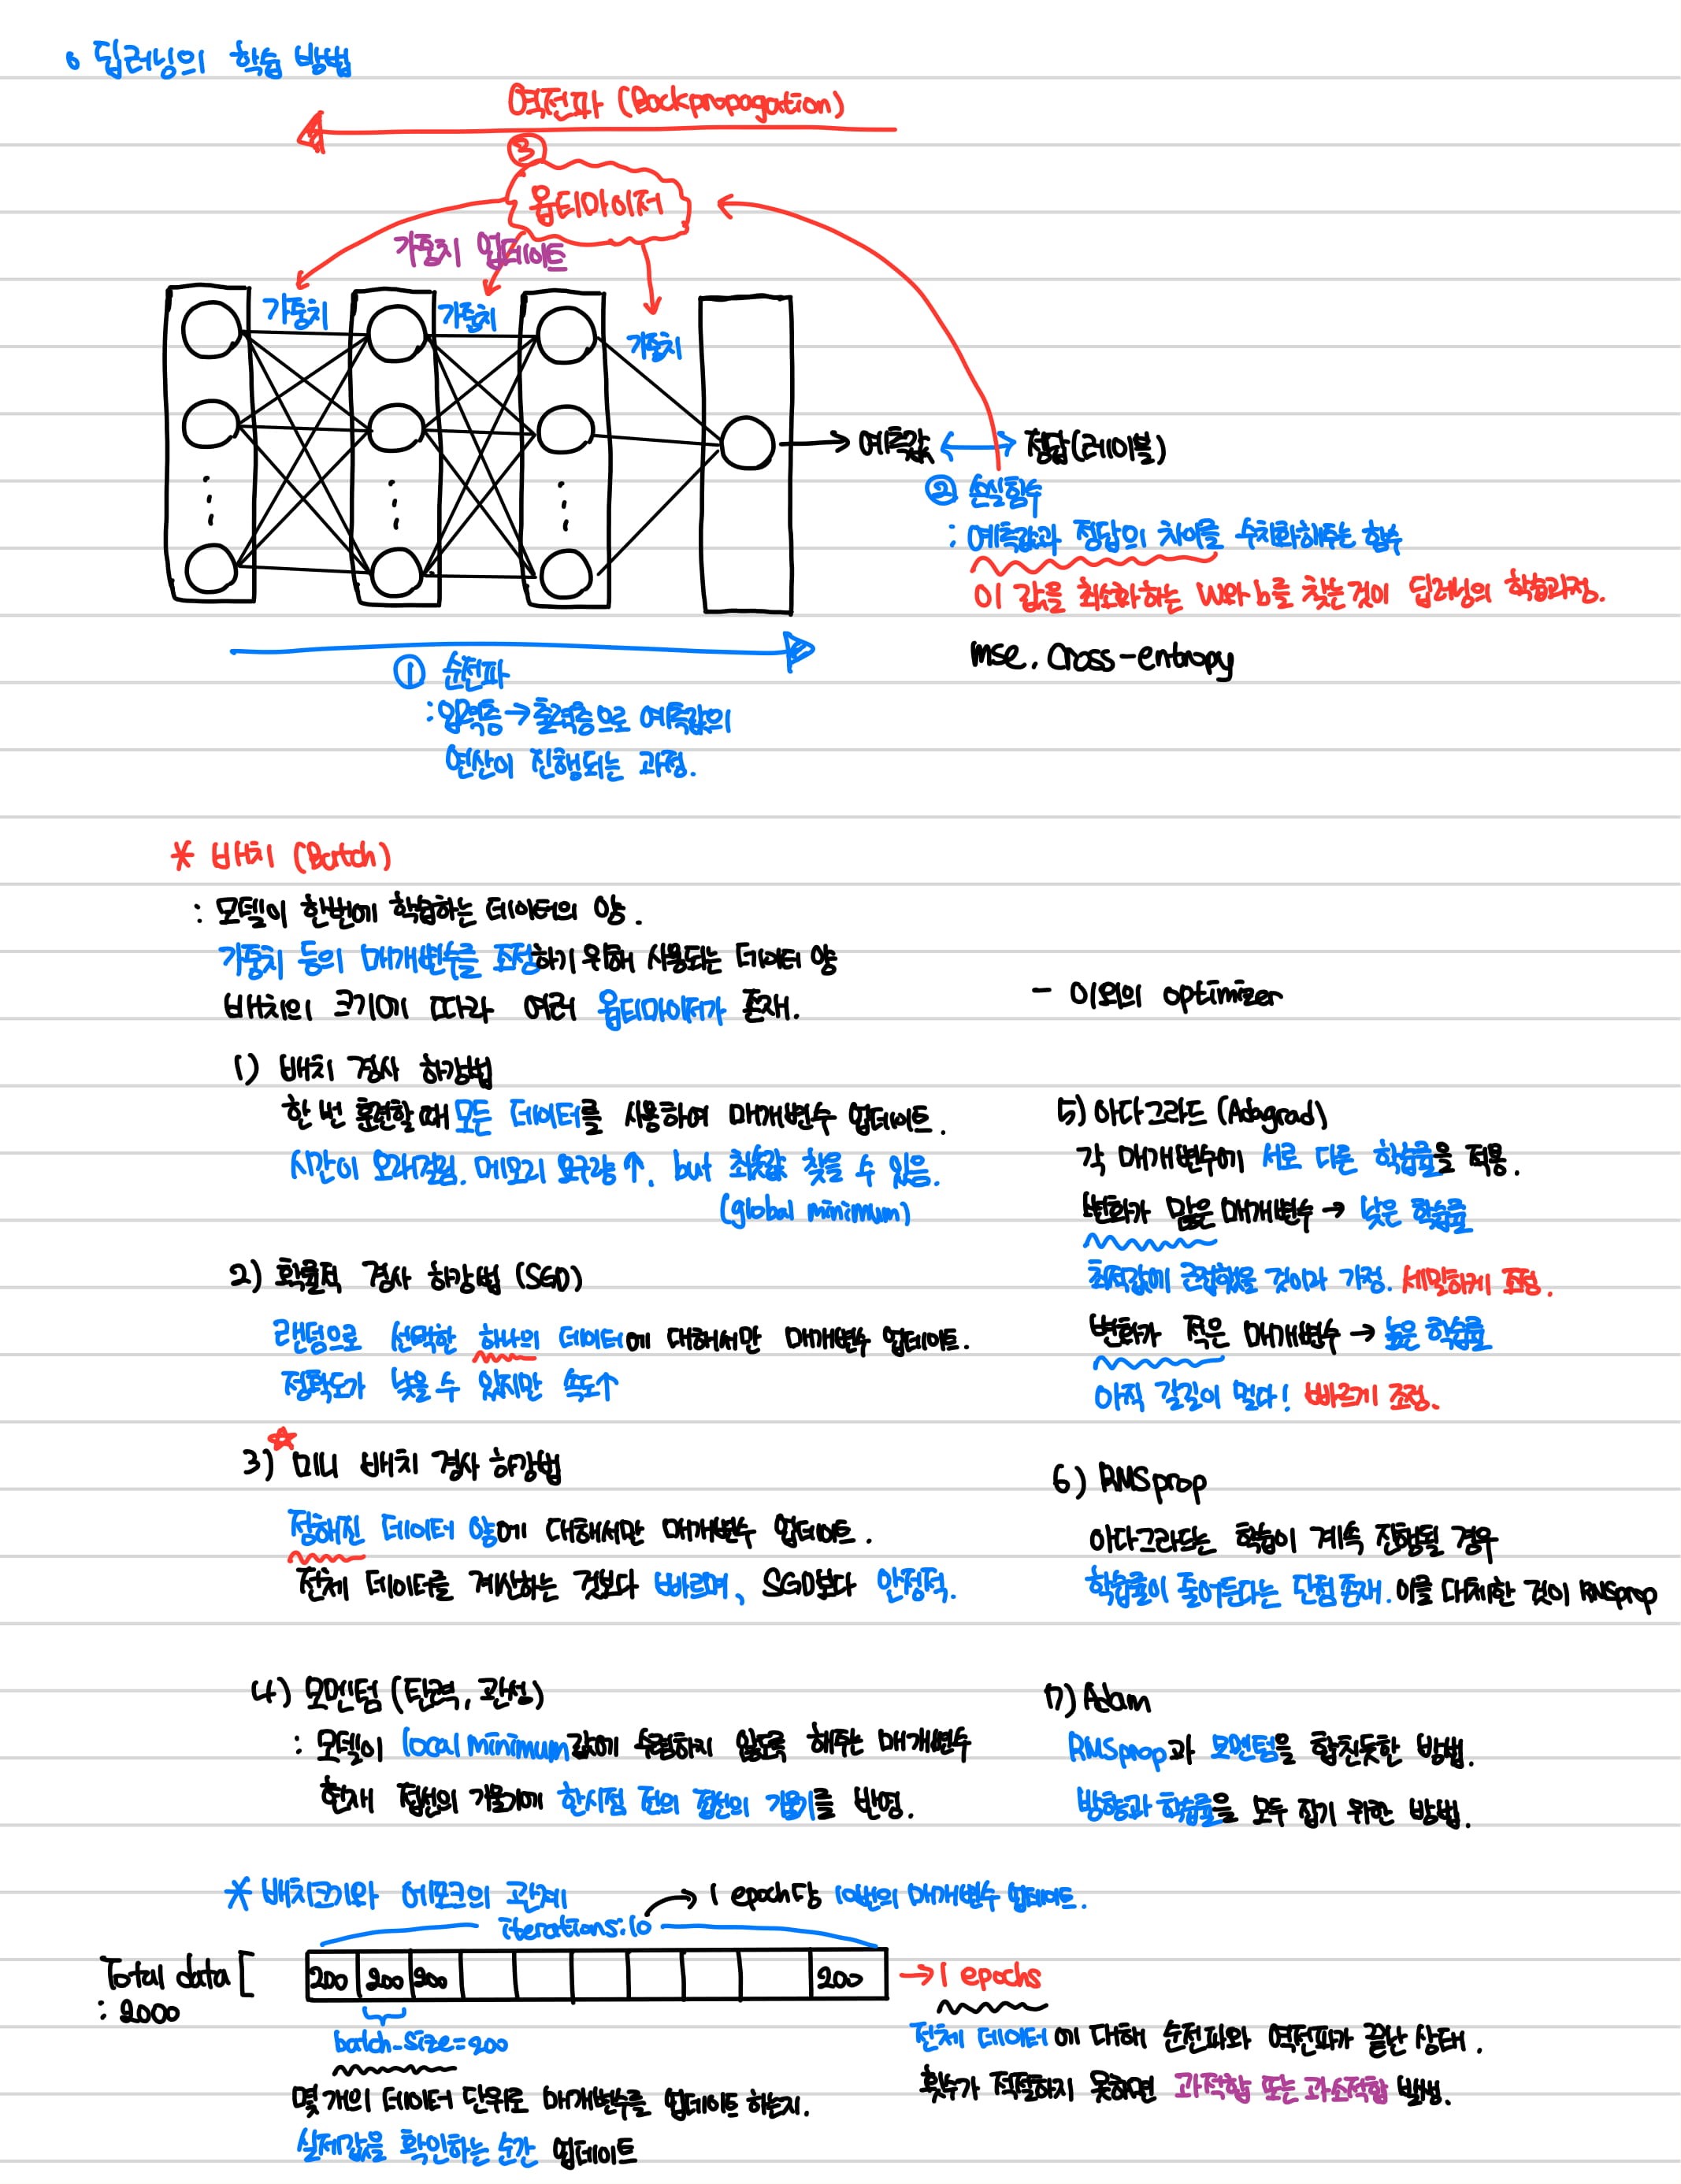 딥러닝의 학습 방법
역전파 (Backpropagation)
③
옵티마이저
가중치 업데이트
가중치
가중치
가중치
예측값 ↔ 정답(레이블)
② 손실함수
: 예측값과 정답의 차이를 수치화해주는 함수
이 값을 최소화하는 W와 b를 찾는것이 딥러닝의 학습과정.
mse. Cross-entropy
① 순전파
: 입력층 → 출력층으로 예측값의
연산이 진행되는 과정.
* 배치 (Batch)
: 모델이 한번에 학습하는 데이터의 양.
가중치 등의 매개변수를 조정하기 위해 사용되는 데이터 양
배치의 크기에 따라 여러 옵티마이저가 존재.
1) 배치 경사 하강법
한 번 훈련할 때 모든 데이터를 사용하여 매개변수 업데이트.
시간이 오래걸림. 메모리 요구량↑. but 최솟값 찾을 수 있음.
(global minimum)
2) 확률적 경사 하강법 (SGD)
랜덤으로 선택한 하나의 데이터에 대해서만 매개변수 업데이트.
정확도가 낮을 수 있지만 속도↑
3) 미니 배치 경사 하강법
정해진 데이터 양에 대해서만 매개변수 업데이트.
전체 데이터를 계산하는 것보다 빠르며, SGD보다 안정적.
4) 모멘텀 (탄력, 관성)
: 모델이 local minimum값에 수렴하지 않도록 해주는 매개변수
현재 접선의 기울기에 한시점 전의 접선의 기울기를 반영.
- 이외의 optimizer
5) 아다그라드 (Adagrad)
각 매개변수에 서로 다른 학습률을 적용.
변화가 많은 매개변수 → 낮은 학습률
최적값에 근접했을 것이라 가정. 세밀하게 조정.
변화가 적은 매개변수 → 높은 학습률
아직 갈길이 멀다! 빠르게 조정.
6) RMSprop
아다그라드는 학습이 계속 진행될 경우
학습률이 줄어든다는 단점존재. 이를 대체한 것이 RMSprop
7) Adam
RMSprop과 모멘텀을 합친듯한 방법.
방향과 학습률을 모두 잡기 위한 방법.
* 배치크기와 에포크의 관계
→ 1 epoch당 10번의 매개변수 업데이트.
iterations:10
Total data [
: 2000
200 200 200 200
→ 1 epochs
batch-size=200
몇 개의 데이터 단위로 매개변수를 업데이트 하는지.
실제값을 확인하는 순간 업데이트
전체 데이터에 대해 순전파와 역전파가 끝난 상태.
횟수가 적절하지 못하면 과적합 또는 과소적합 발생.